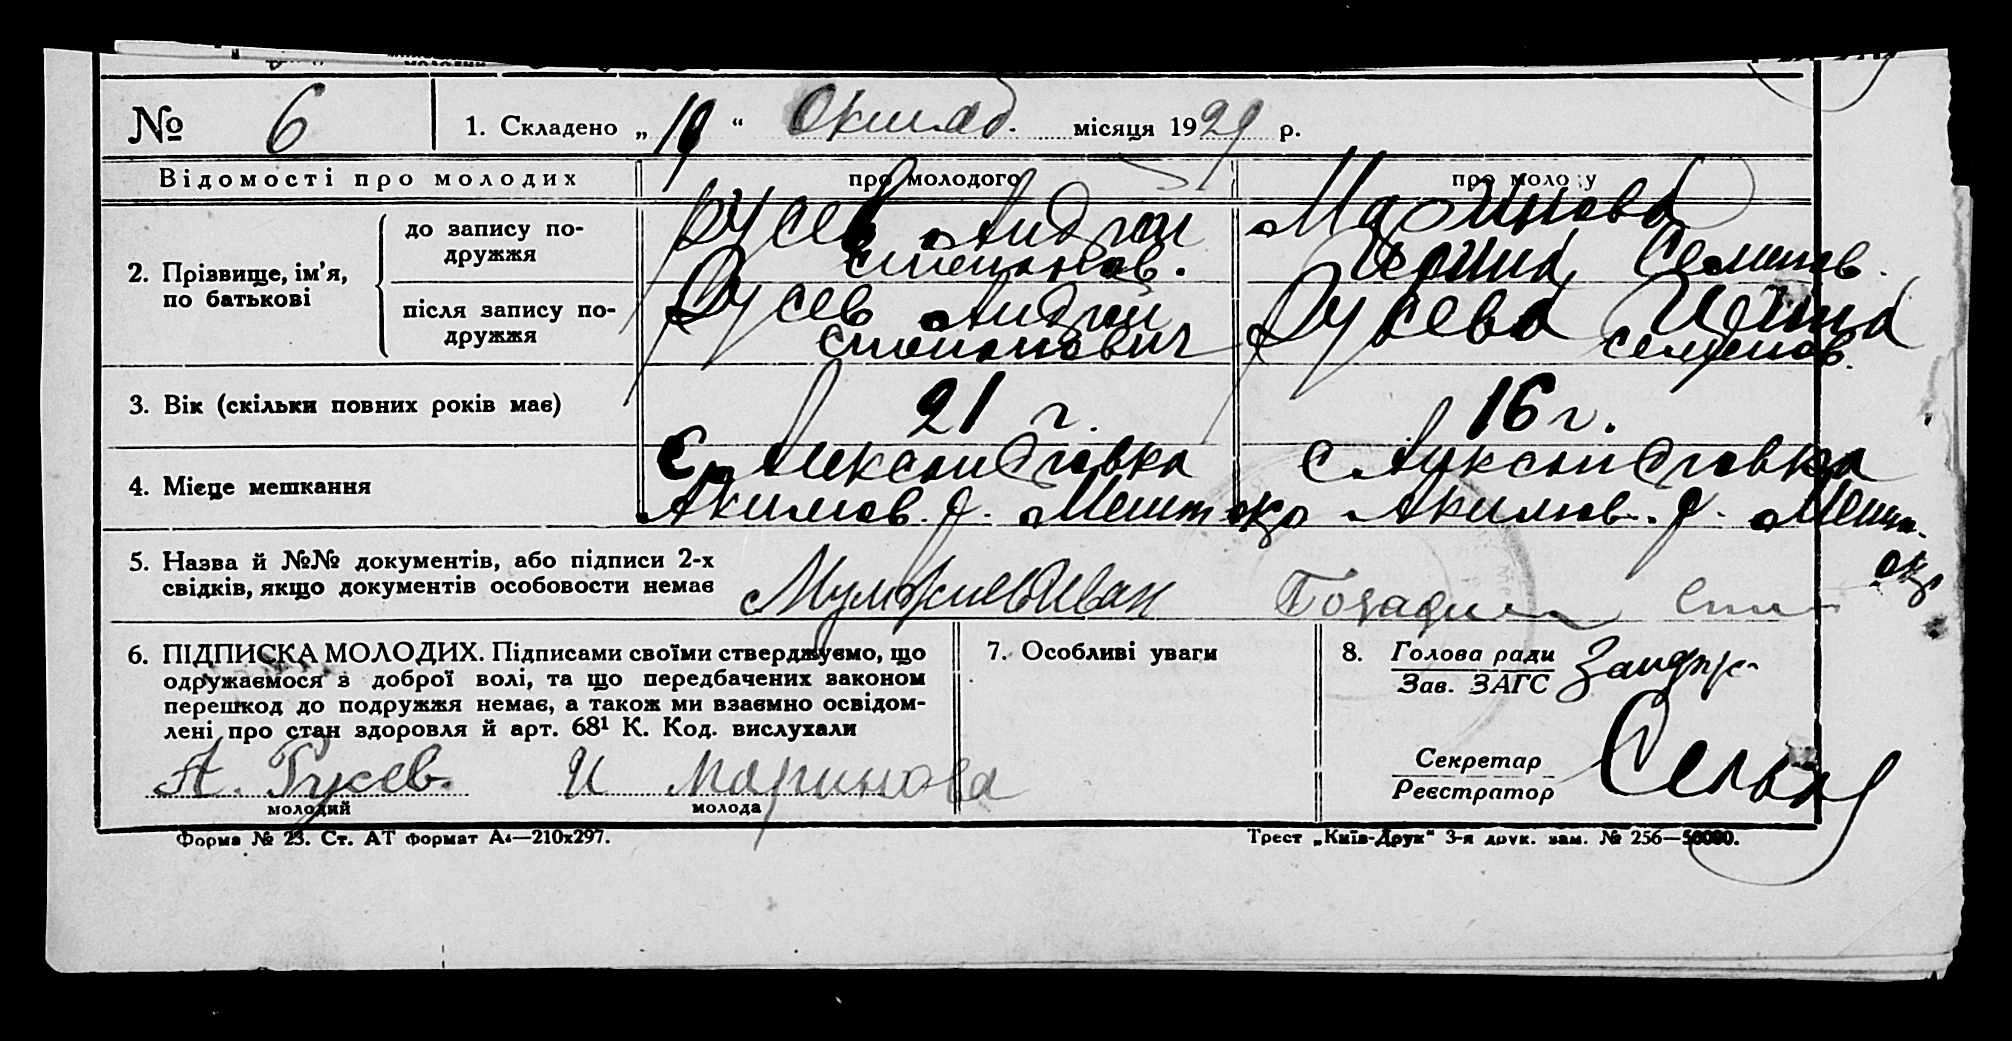 № 6 1. Складено „ 19 “ Октяб. місяця 1929 р.
Відомості про молодих про молодого про молоду
2. Прізвище, ім'я, по батькові
до запису по-
дружжя
Русев Андрей
Степанов.
Маринова
Ирина Семенов.
після запису по-
дружжя
Русев Андрей
Степанович
Русева Ирина
Семенов.
3. Вік (скільки повних років має) 21 г. 16 г.
4. Місце мешкання
с. Александровка
Акимов. р. Мелит окр
с Александровка
Акимов. р. Мелит.
окр
5. Назва й №№ документів, або підписи 2-х
свідків, якщо документів особовости немає
Иван
6. ПІДПИСКА МОЛОДИХ. Підписами своїми стверджуємо, що
одружаємося з доброї волі, та що передбачених законом
перешкод до подружжя немає, а також ми взаємно освідом-
лені про стан здоровля й арт. 68¹ К. Код. вислухали
А. Русев. И Маринова
молодий молода
7. Особливі уваги
8. Голова ради
Зав. ЗАГС
Секретар
Реєстратор
Форма № 23. Ст. АТ формат А4—210х297.
Трест „Київ-Друк“ 3-я друк. зам. № 256—50000.